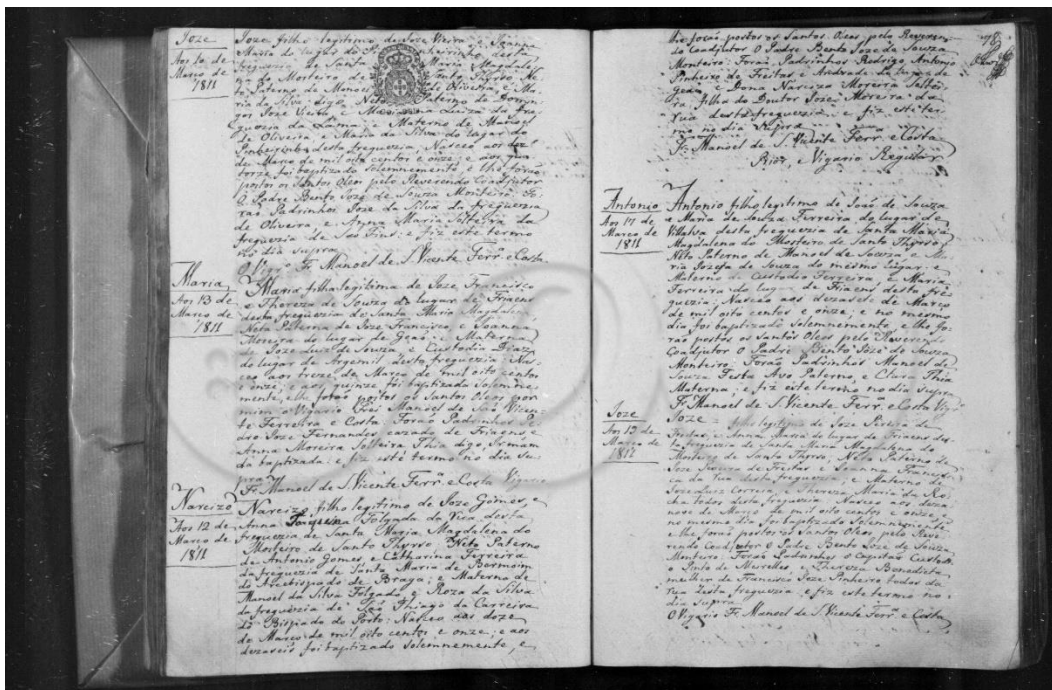 Joze
Aos 10 de
Março de
1811
Joze filho legitimo de Joze Vieira e Joanna
Maria do lugar do Pinheirinho desta
freguezia de Santa Maria Magdale-
na do Mosteiro de Santo Thyrso, Ne-
to Paterno de Manoel de Oliveira, e Ma-
ria da Silva; digo, Neto Paterno de Domin-
gos Joze Vieira e Marianna Luiza da fre-
guezia da Lama; e Materno de Manoel
de Oliveira, e Maria da Silva do lugar do
Pinheirinho desta freguezia; Nasceo aos dez
de Março de mil oito centos e onze; e aos qua-
torze foi baptizado solemnemente, e lhe forão
postos os Santos Oleos pelo Reverendo Coadjutor
O Padre Bento Joze de Souza Monteiro; Fo-
rão Padrinhos Joze da Silva da freguezia
de Oliveira, e Anna Maria Solteira da
freguezia de São Fins; e fiz este termo
no dia supra.
O Vigr.º Fr. Manoel de S. Vicente Ferr.ª e Costa
Maria
Aos 13 de
Março de
1811
Maria filha legitima de Joze Francisco
e Thereza de Souza do lugar de Friaens
desta freguezia de Santa Maria Magdalena,
Neta Paterna de Joze Francisco, e Joanna
Moreira do lugar de Geão; e Materna
de Joze Luiz de Souza, e Custodia Diaz
do lugar de Argemil desta freguezia; Nas-
ceo aos treze de Março de mil oito centos
e onze; e aos quinze foi baptizada solemne-
mente, e lhe forão postos os Santos Oleos por
mim o Vigario Frei Manoel de São Vicen-
te Ferreira e Costa; Forão Padrinhos Pe-
dro Joze Fernandes, cazado de Friaens e
Anna Moreira Solteira Thia digo, Irmam
da baptizada; e fiz este termo no dia su-
pra.
Fr. Manoel de S. Vicente Ferr.ª e Costa Vigario
Narcizo
Aos 12 de
Março de
1811
Narcizo, filho legitimo de Joze Gomes, e
Anna Folgada da Vica desta
freguezia de Santa Maria Magdalena do
Mosteiro de Santo Thyrso Neto Paterno
de Antonio Gomes, e Catharina Ferreira
da freguezia de Santa Maria de Bermoim
do Arcebispado de Braga; e Materno de
Manoel da Silva Folgado, e Roza da Silva
da freguezia de São Thiago da Carreira
do Bispado do Porto; Nasceo aos doze
de Março de mil oito centos e onze; e aos
dezaseis foi baptizado solemnemente, e
lhe forão postos os Santos Oleos, pelo Reveren-
do Coadjutor O Padre Bento Joze de Souza
Monteiro; Forão Padrinhos Rodrigo Antonio
Pinheiro de Freitas e Andrade do lugar de
Geão, e Dona Narciza Moreira Soltei-
ra, filha do Doutor Joze Moreira da
rua desta freguezia, e fiz este ter-
mo no dia supra.
Fr. Manoel de S. Vicente Ferr.ª e Costa
Prior, e Vigario Regular
Antonio
Aos 17 de
Março de
1811
Antonio filho legitimo de João de Souza
e Maria de Souza Ferreira do lugar de
Villalva desta freguezia de Santa Maria
Magdalena do Mosteiro de Santo Thyrso;
Neto Paterno de Manoel de Souza, e Ma-
ria Jozefa de Souza do mesmo lugar; e
Materno de Custodio Ferreira, e Maria
Ferreira do lugar de Friaens desta fre-
guezia; Nasceo aos dezasete de Março
de mil oito centos e onze; e no mesmo
dia foi baptizado solemnemente, e lhe fo-
rão postos os Santos Oleos pelo Reverendo
Coadjutor O Padre Bento Joze de Souza
Monteiro; Forão Padrinhos Manoel de
Souza Testa Avo Paterno, e Clara Thia
Materna; e fiz este termo no dia supra.
Fr. Manoel de S. Vicente Ferr.ª e Costa Vigr.º
Joze
Aos 19 de
Março de
1811
Joze = filho legitimo de Joze Pereira de
Freitas, e Anna Maria do lugar de Friaens des-
ta freguezia de Santa Maria Magdalena do
Mosteiro de Santo Thyrso; Neto Paterno de
Joze Pereira de Freitas, e Joanna Francis-
ca da rua desta freguezia; e Materno de
Joze Luiz Correia, e Thereza Maria da Ro-
cha todos desta freguezia; Nasceo aos deza-
nove de Março de mil oito centos e onze,
no mesmo dia foi baptizado solemnemente
e lhe forão postos os Santos Oleos pelo Reve-
rendo Coadjutor o Padre Bento Joze de Souza
Monteiro; Forão Padrinhos o Capitão Custodio
Pinto de Meirelles, e Thereza Benedicta,
mulher de Francisco Joze Pinheiro todos da
rua desta freguezia; e fiz este termo no
dia supra.
O Vigario Fr. Manoel de S. Vicente Ferr.ª e Costa